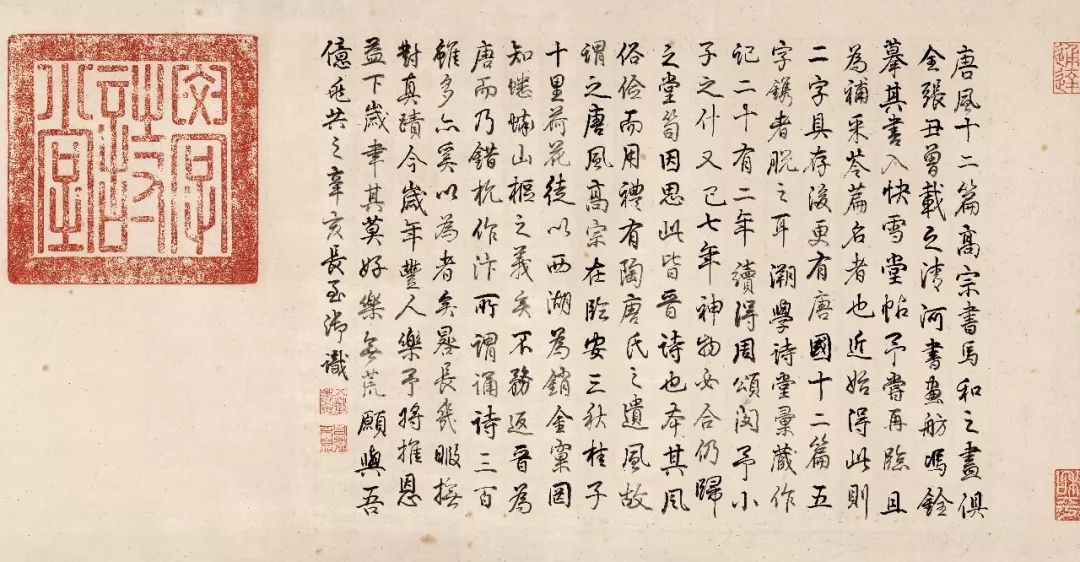 唐風十二篇高宗書馬和之畫俱
全張丑曾載之清河書畫舫馮銓
摹其書入快雪堂帖予嘗再臨且
為補采苓篇名者也近始得此則
二字具存後更有唐國十二篇五
字鐫者脫之耳溯學詩堂彙藏作
記二十有二年續得周頌閔予小
子之什又已七年神物妥合仍歸
之堂笥因思此皆晉詩也本其風
俗儉而用禮有陶唐氏之遺風故
謂之唐風高宗在臨安三秋桂子
十里荷花徒以西湖為銷金窠罔
知蟋蟀山樞之義矣不務返晉為
唐而乃錯杭作汴所謂誦詩三百
雖多亦奚以為者矣晷長幾暇撫
對真蹟今歲年豐人樂予將推恩
益下歲聿其莫好樂無荒願與吾
億兆共之辛亥長至御識